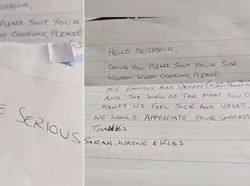 NEIGHBOUR,
COULD YOU PLEASE SHUT YOUR
WINDOW WHEN COOKING PLEASE
SERIOUS
HELLO NEIGHBOUR,
COULD YOU PLEASE SHUT YOUR SIDE
WINDOW WHEN COOKING PLEASE
MY FAMILY ARE VEGAN
AND THE SMELL OF THE MEAT YOU CO
MAKES US FEEL SICK AND UPSET.
WE WOULD APPRECIATE YOUR UNDERST
THANKS
SARAH, WAYNE & KIDS